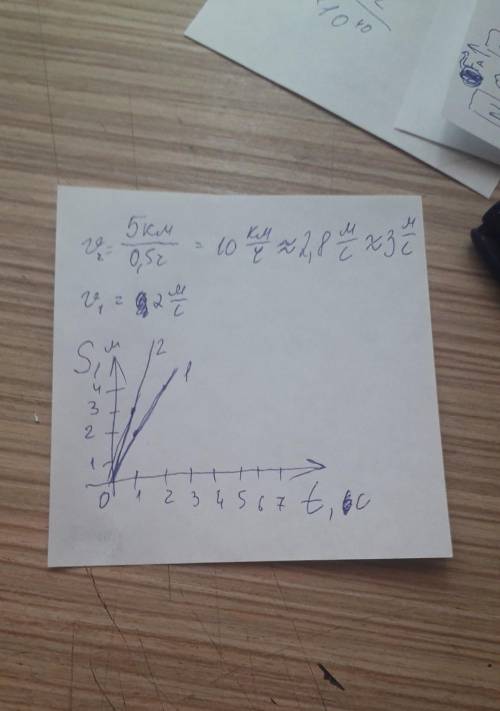 10⁴⁰
v₂ = 5км/0,5ч = 10 км/ч ≈ 2,8 м/с ≈ 3 м/с
v₁ = 2 м/с
S, м
2
1
4
3
2
1
0 1 2 3 4 5 6 7 t, с